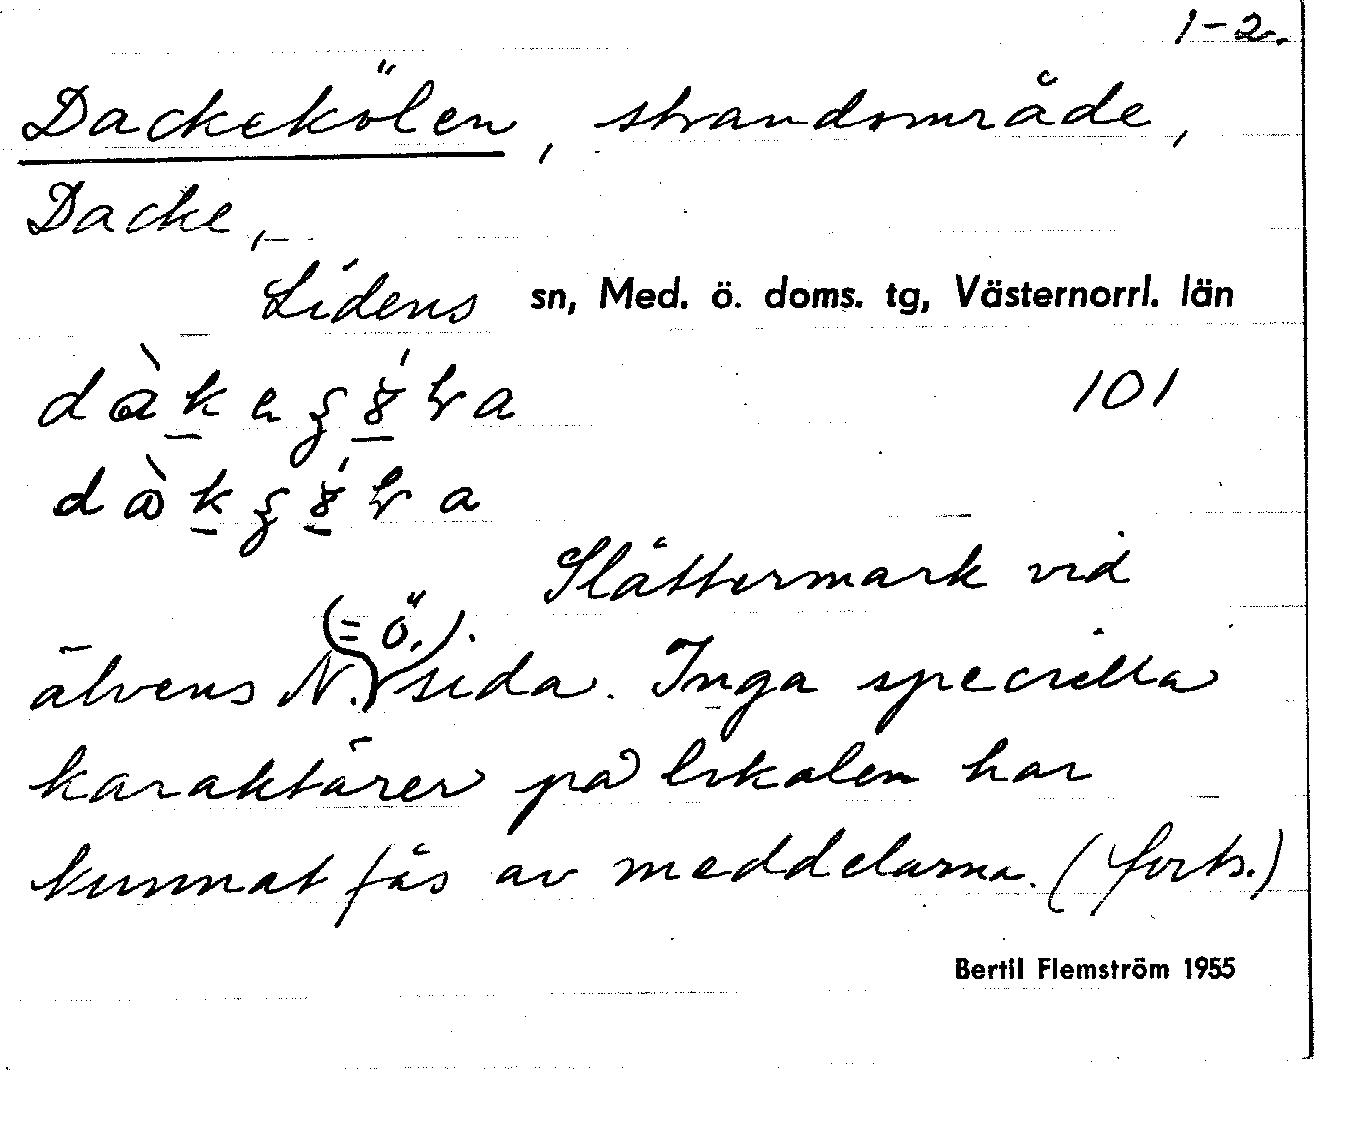 1-2.
Dackekölen, strandområde,
Dacke,
Lidens sn, Med. ö. doms. tg, Västernorrl. län
101
Slåttermark vid
(= ö.).
älvens N. sida. Inga speciella
karaktärer på lokalen har
kunnat fås av meddelarna. (forts.)
Bertil Flemström 1955